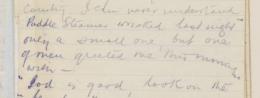 I can never understand
Paddle Steamer wrecked last night
only a small one, but one
of men greeted me this morning
with —
"God is good, look on the